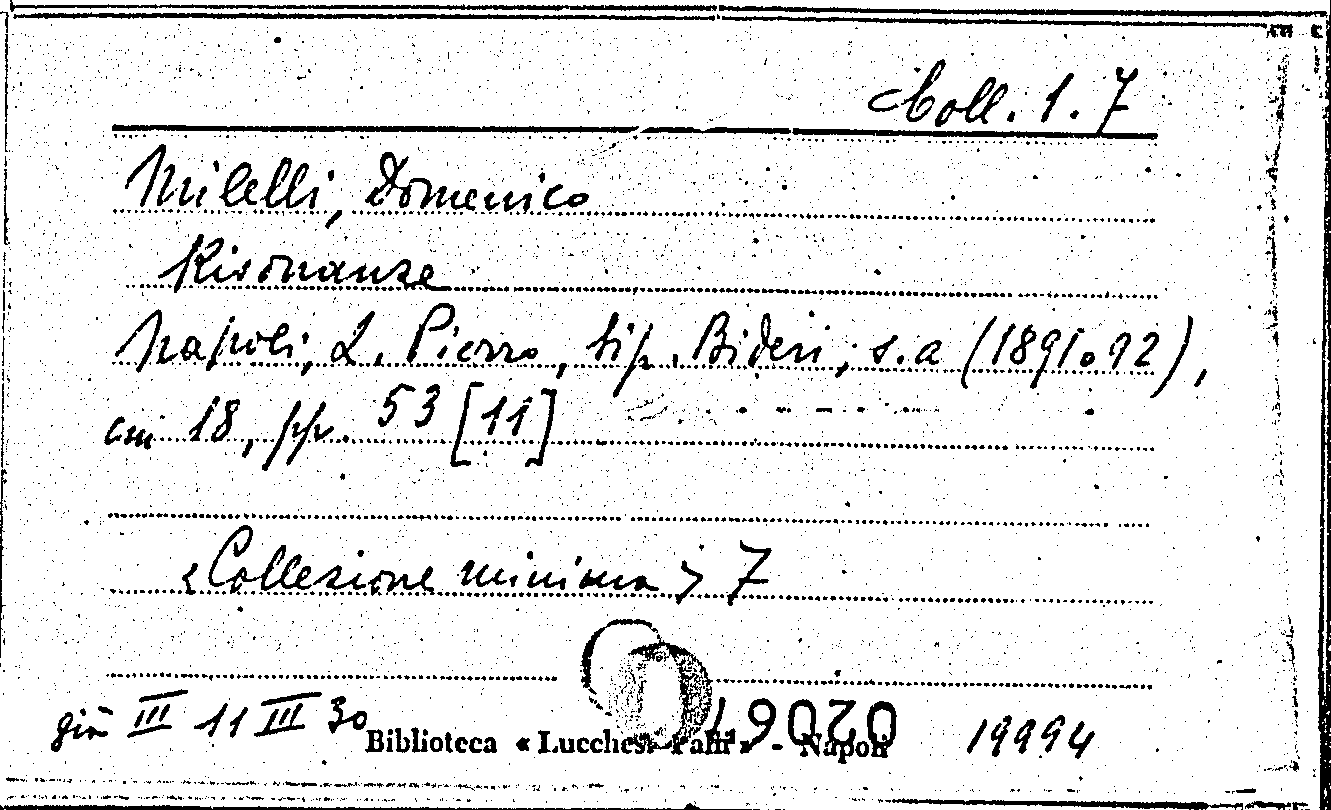 Coll. 1. 7
Milelli, Domenico
Risonanze
Napoli, L. Pierro, tip. Bideri, s.a (1891.92),
cm 18, pp. 53 [11]
«Collezione minima» 7
già III 11 III 30
Biblioteca «Lucchesi Palli» - Napoli
19994